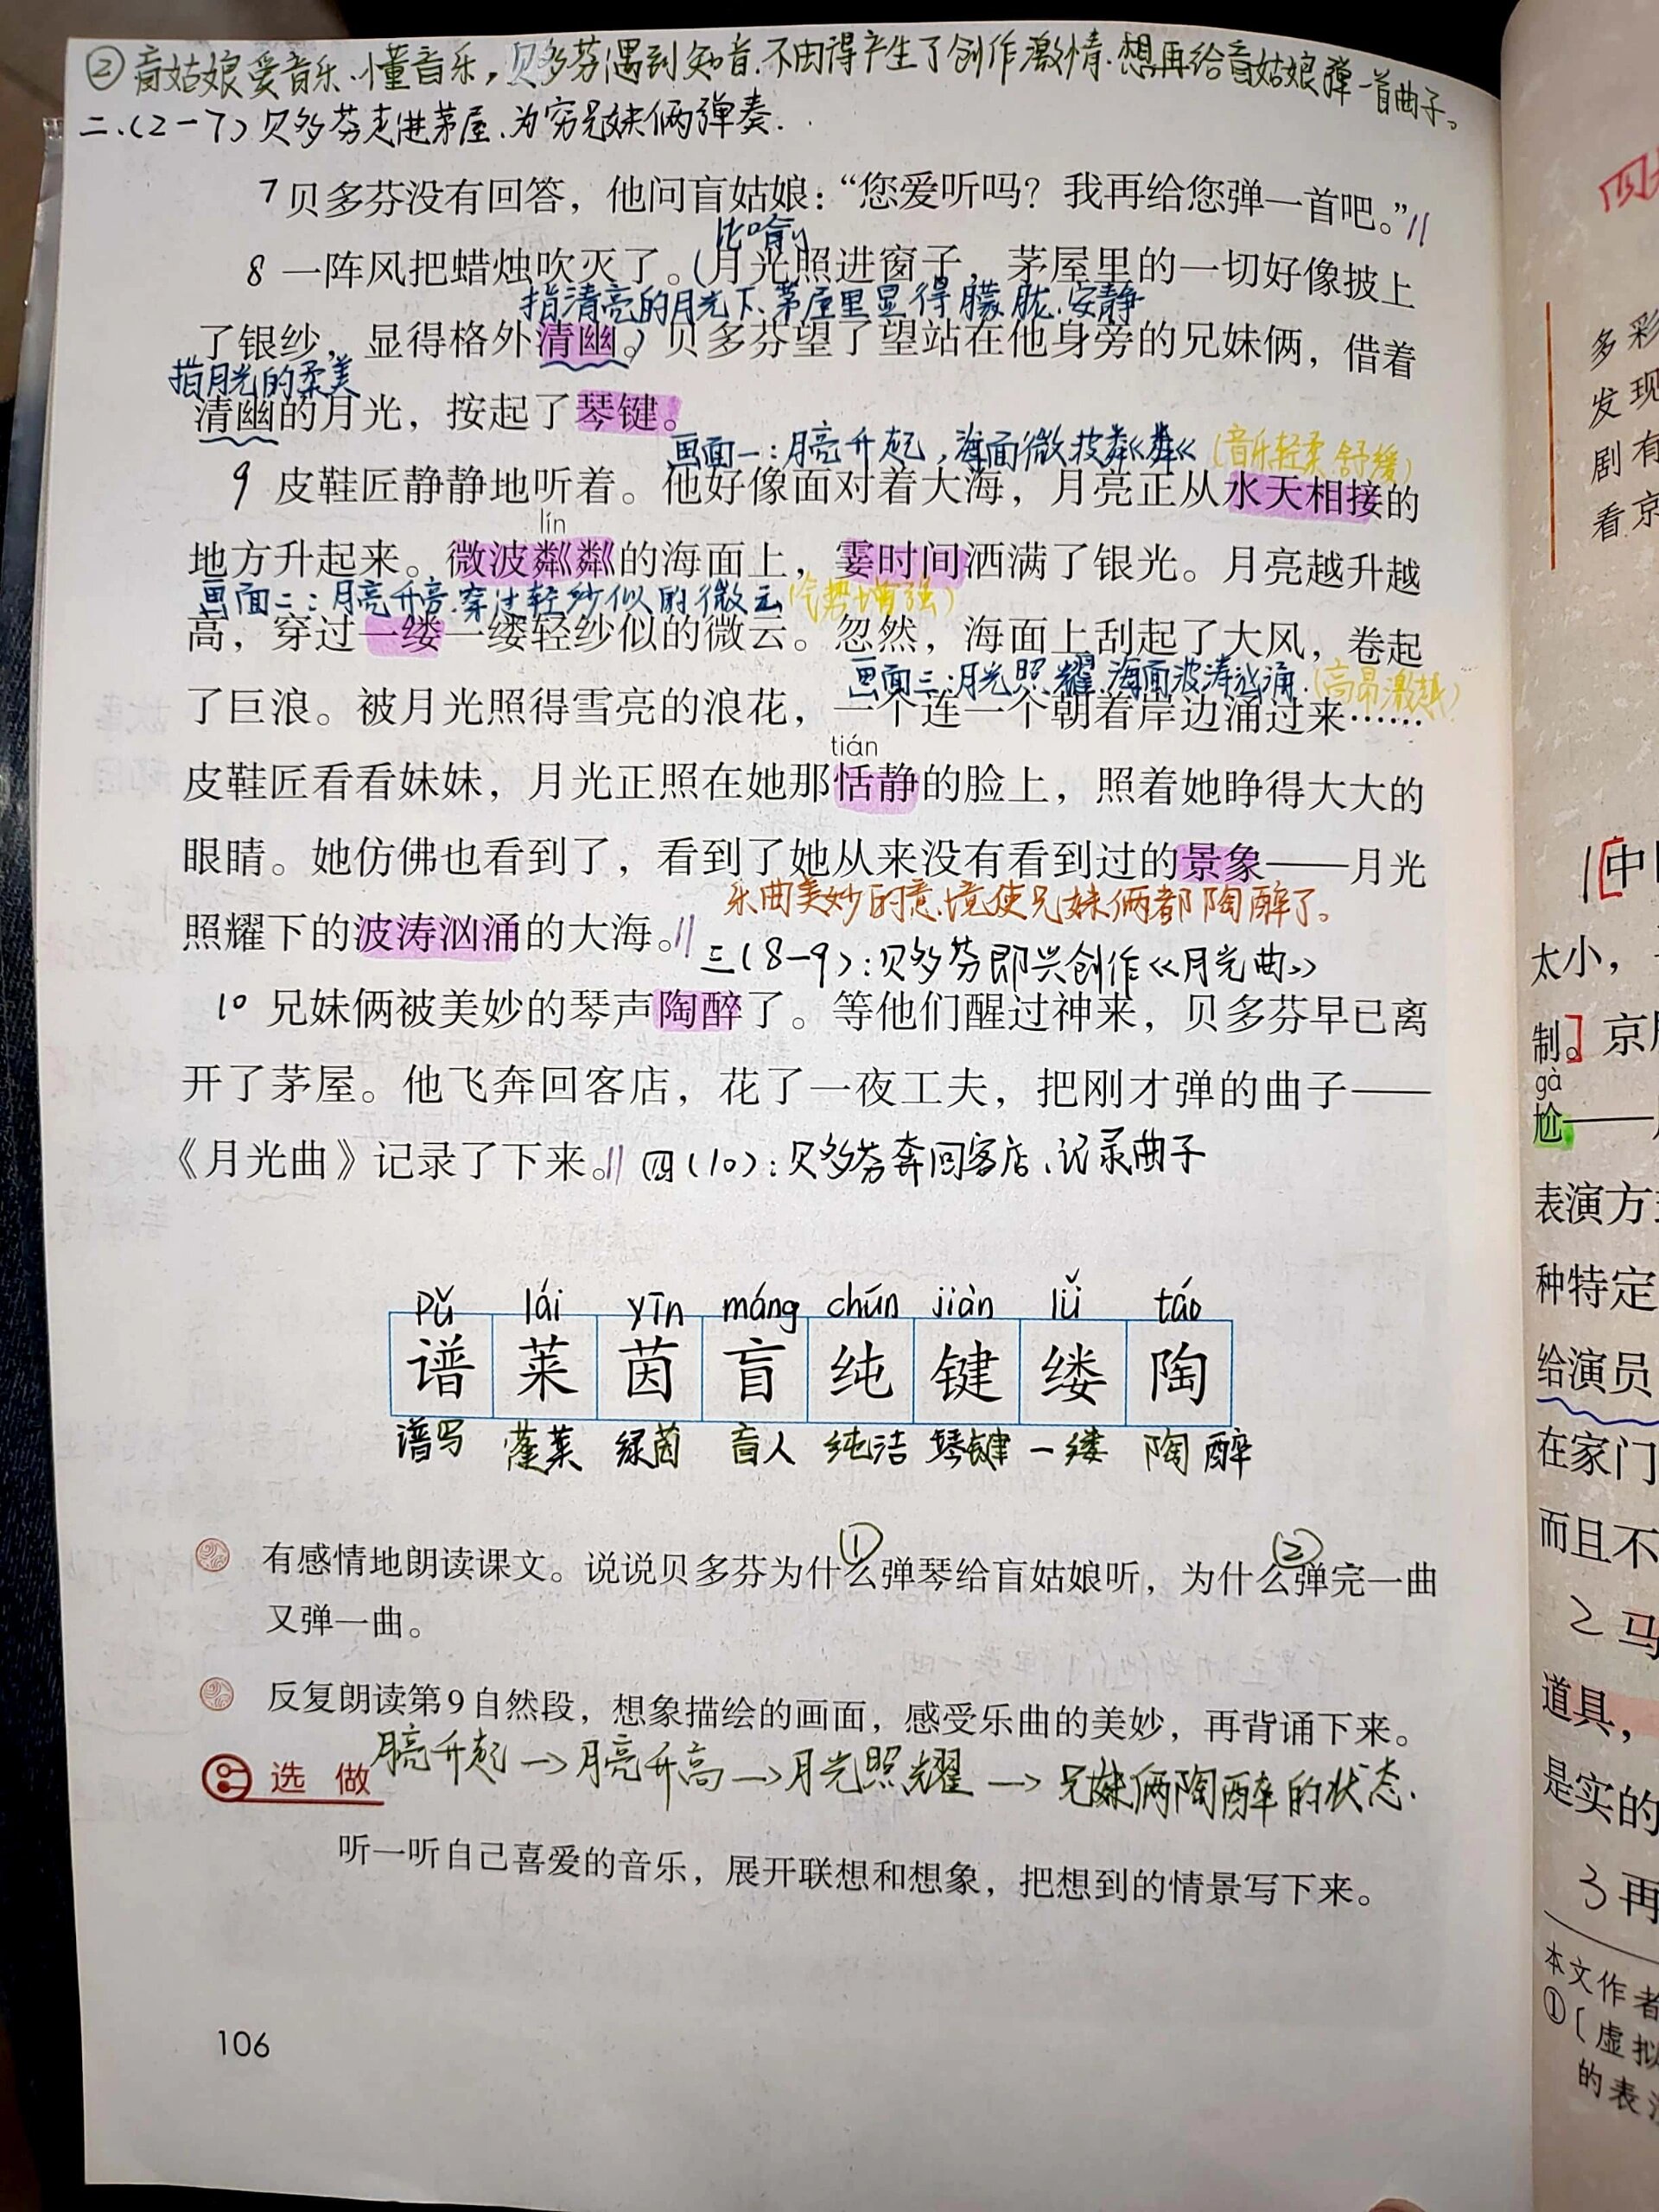 ②盲姑娘爱音乐、懂音乐，贝多芬遇到知音，不由得产生了创作激情，想再给盲姑娘弹一首曲子。
二、（2－7）贝多芬走进茅屋、为穷兄妹俩弹奏．
7 贝多芬没有回答，他问盲姑娘：“您爱听吗？我再给您弹一首吧。”//
比喻
8 一阵风把蜡烛吹灭了。（月光照进窗子，茅屋里的一切好像披上
指清亮的月光下、茅屋里显得朦胧、安静
了银纱，显得格外清幽。）贝多芬望了望站在他身旁的兄妹俩，借着
指月光的柔美
清幽的月光，按起了琴键。
画面一：月亮升起，海面微波粼粼（音乐轻柔舒缓）
9 皮鞋匠静静地听着。他好像面对着大海，月亮正从水天相接的
lín
地方升起来。微波粼粼的海面上，霎时间洒满了银光。月亮越升越
画面二：月亮升高、穿过轻纱似的微云（气势增强）
高，穿过一缕一缕轻纱似的微云。忽然，海面上刮起了大风，卷起
画面三：月光照耀、海面波涛汹涌．（高昂激越）
了巨浪。被月光照得雪亮的浪花，一个连一个朝着岸边涌过来……
tián
皮鞋匠看看妹妹，月光正照在她那恬静的脸上，照着她睁得大大的
眼睛。她仿佛也看到了，看到了她从来没有看到过的景象——月光
乐曲美妙的意境使兄妹俩都陶醉了。
照耀下的波涛汹涌的大海。//
三（8－9）：贝多芬即兴创作《月光曲》
10 兄妹俩被美妙的琴声陶醉了。等他们醒过神来，贝多芬早已离
开了茅屋。他飞奔回客店，花了一夜工夫，把刚才弹的曲子——
《月光曲》记录了下来。// 四（10）：贝多芬奔回客店、记录曲子
pǔ lái yīn máng chún jiàn lǚ táo
谱 莱 茵 盲 纯 键 缕 陶
谱写 蓬莱 绿茵 盲人 纯洁 琴键 一缕 陶醉
① ②
有感情地朗读课文。说说贝多芬为什么弹琴给盲姑娘听，为什么弹完一曲
又弹一曲。
反复朗读第9自然段，想象描绘的画面，感受乐曲的美妙，再背诵下来。
月亮升起→月亮升高→月光照耀→兄妹俩陶醉的状态．
选做
听一听自己喜爱的音乐，展开联想和想象，把想到的情景写下来。
106
多彩
发现
剧有
看京
1[中
太小，
制。]京
gà
尬——
表演方
种特定
给演员
在家门
而且不
2 马
道具，
是实的
3 再
本文作者
①〔虚拟
的表